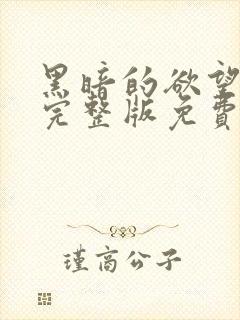 黑暗的欲望
完整版免费
瑾高公子